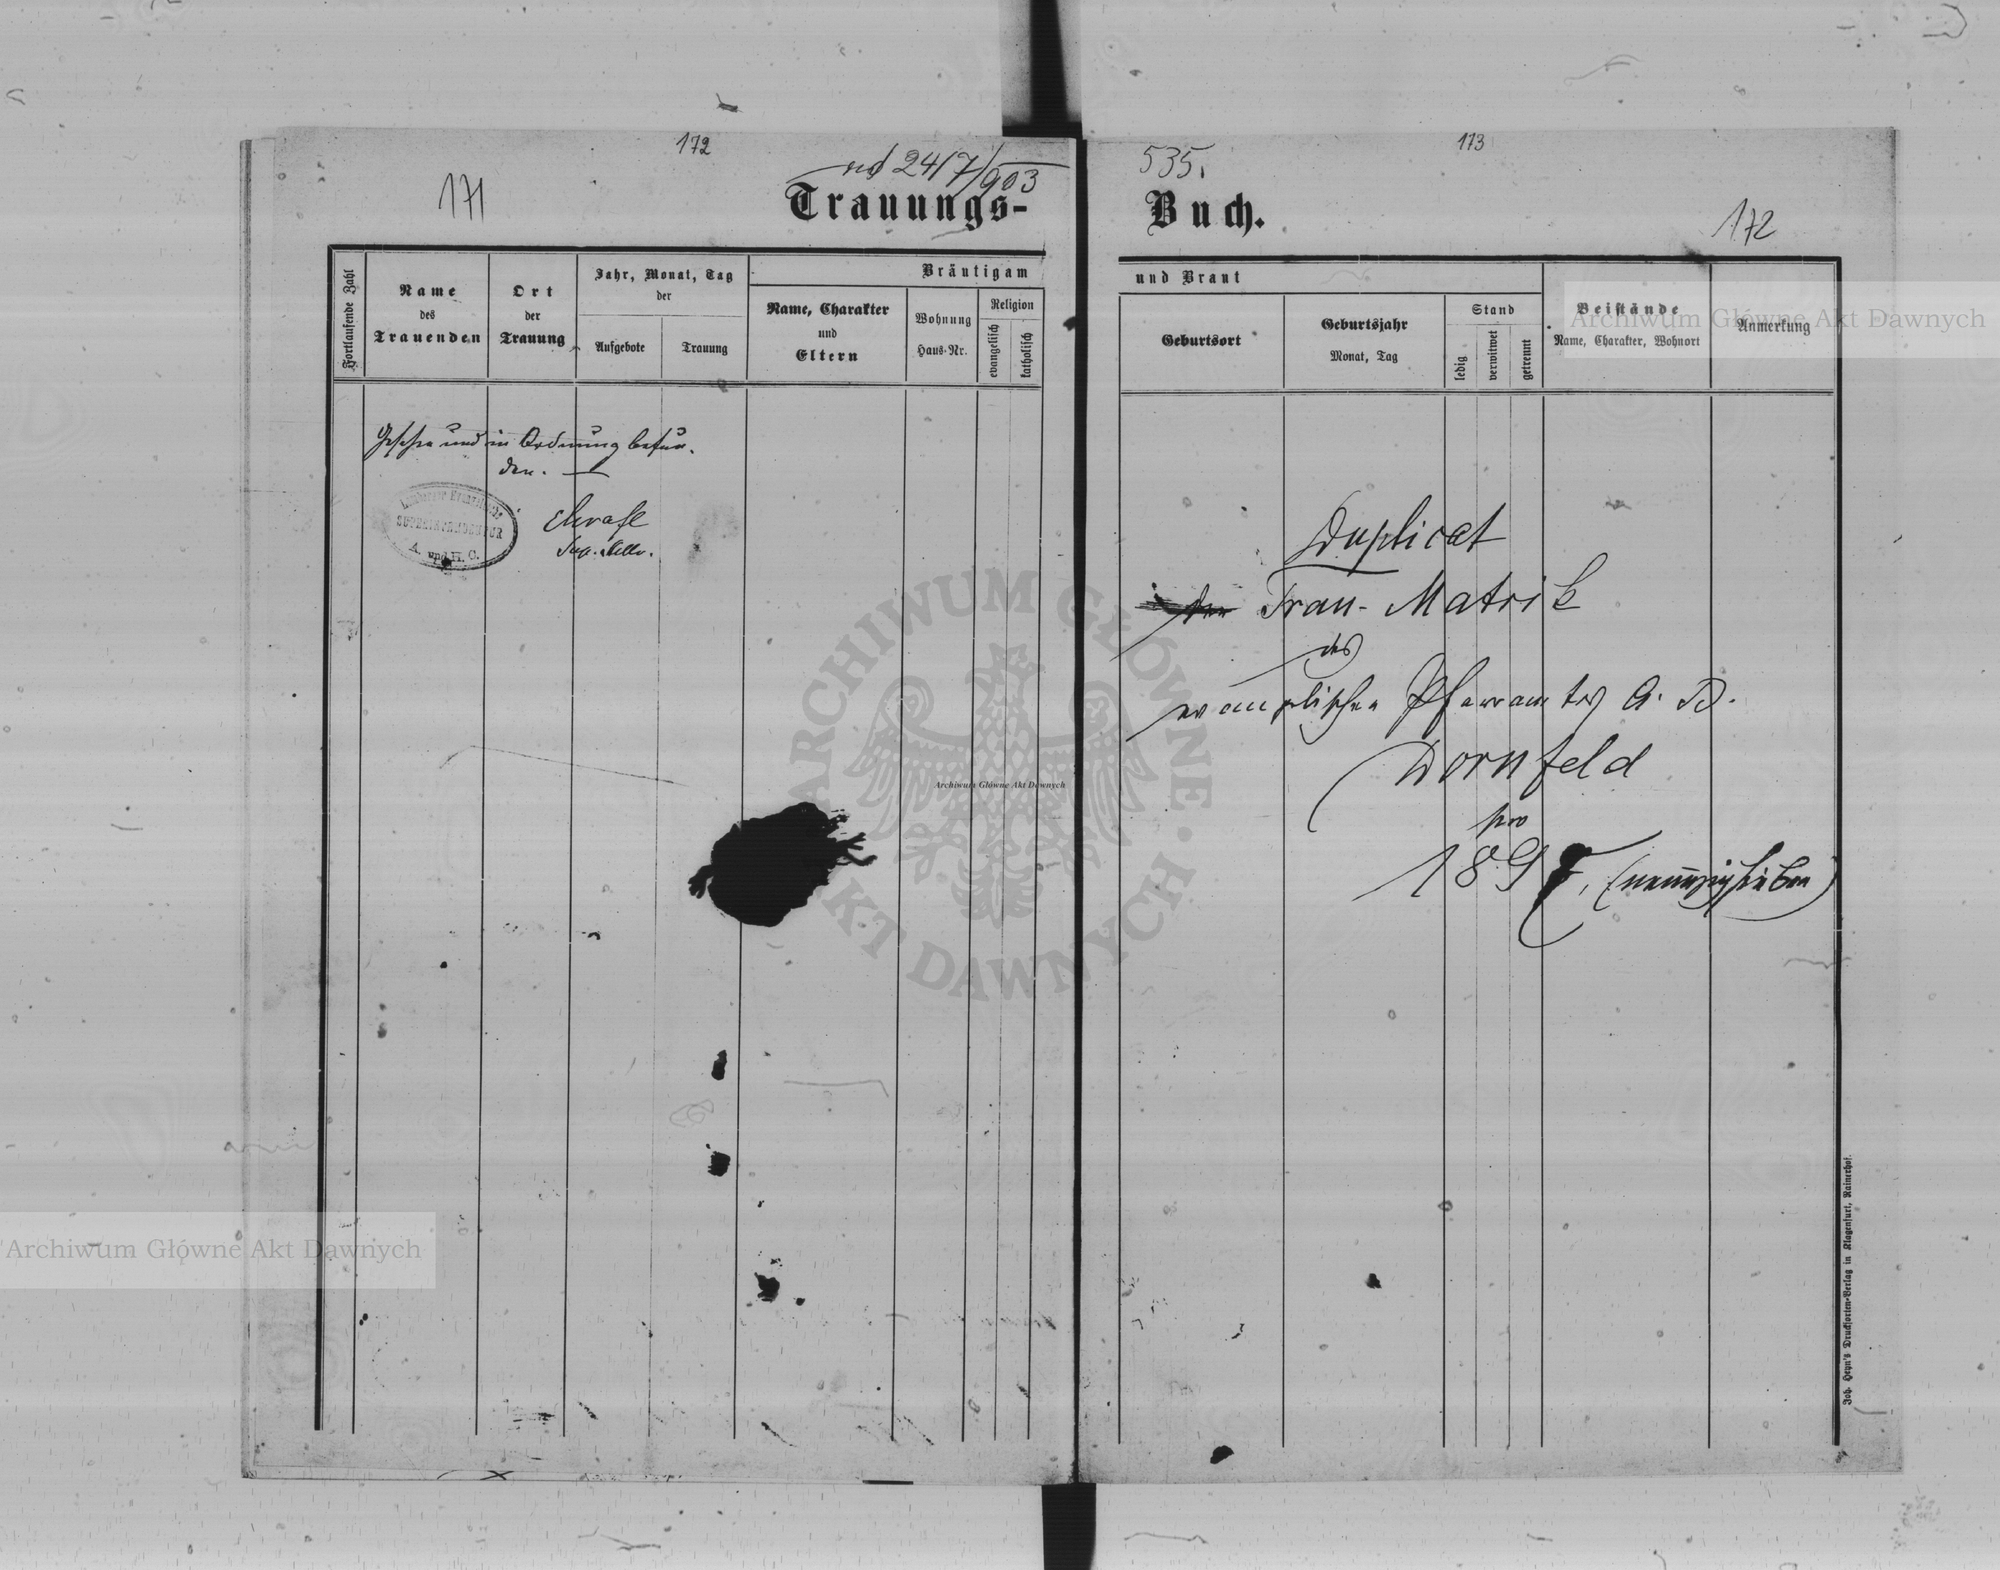 172
173
nd 24/7/903
535.
171
Trauungs-
Buch.
172
Fortlaufende Zahl
Name
des
Trauenden
Ort
der
Trauung
Jahr, Monat, Tag
der
Aufgebote
Trauung
Bräutigam
Name, Charakter
und
Eltern
Wohnung
Haus-Nr.
Religion
evangelisch
katholisch
und Braut
Geburtsort
Geburtsjahr
Monat, Tag
Stand
ledig
verwitwet
getrennt
Beistände
Name, Charakter, Wohnort
Anmerkung
Archiwum Główne Akt Dawnych
Gesehen und in Ordnung befun-
den.
SUPERINTENDENTUR
A. und H. C.
Sup. Stellv.
Duplicat
Trau-Matrik
des
evangelischen Pfarramtes A. B.
Dornfeld
pro
1897, (neunzigsieben)
ARCHIWUM GŁÓWNE AKT DAWNYCH
Archiwum Główne Akt Dawnych
Archiwum Główne Akt Dawnych
Joh. Heyn's Drucksorten-Verlag in Klagenfurt, Rainerhof.